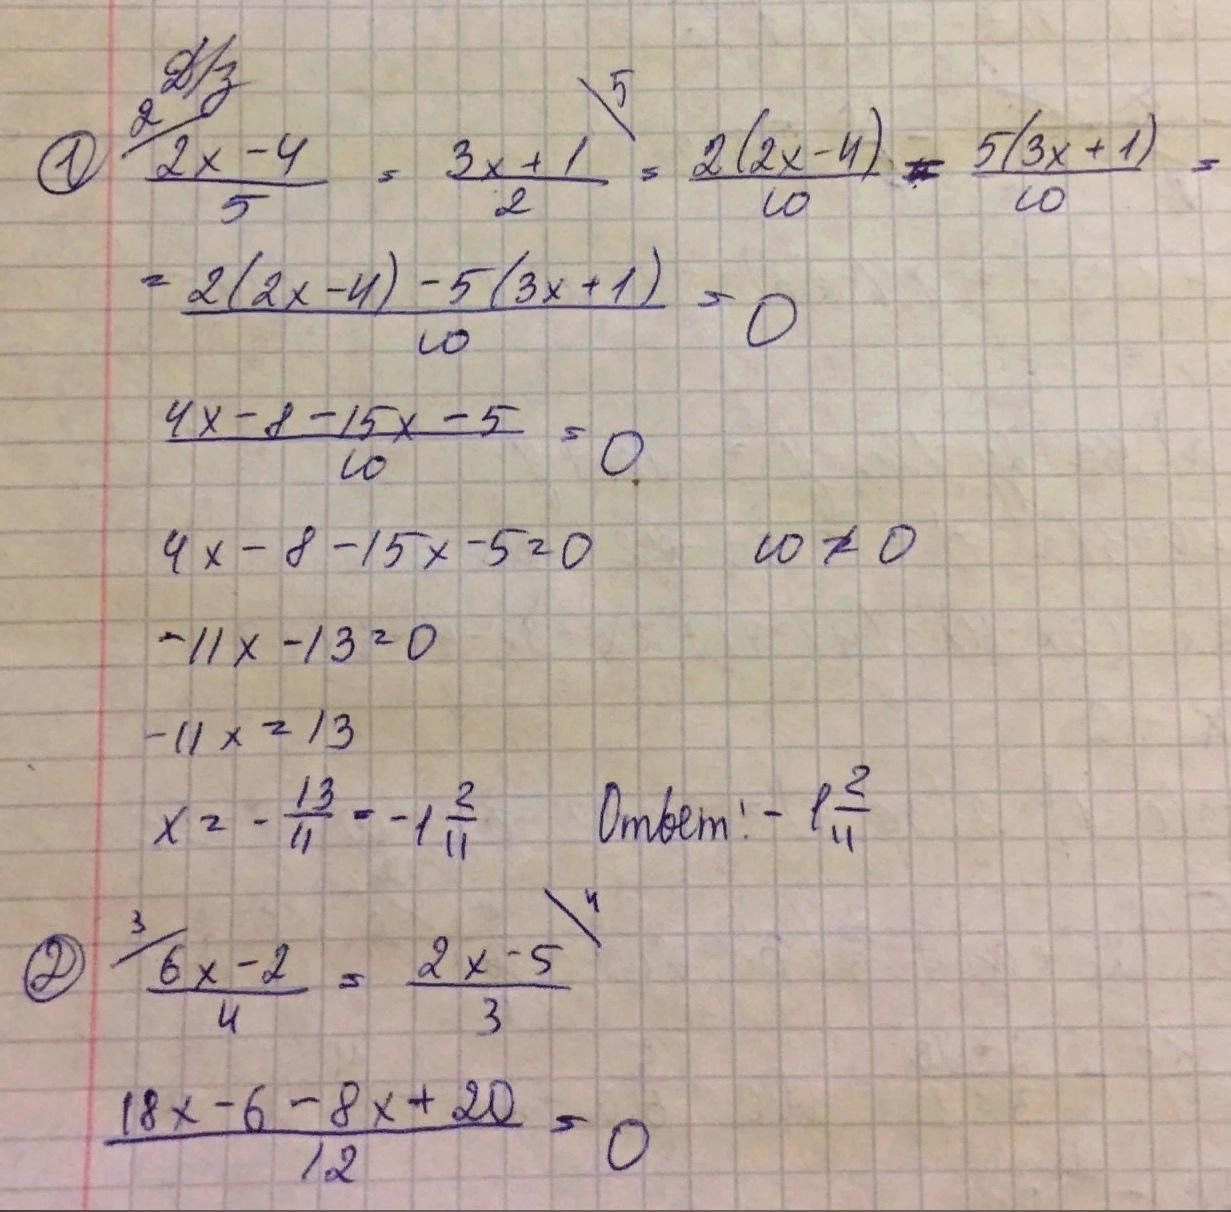 Д/з
① 2/ (2x-4)/5 = (3x+1)/2 \5 = 2(2x-4)/10 = 5(3x+1)/10 =
= (2(2x-4) -5(3x+1))/10 = 0
(4x-8-15x-5)/10 = 0
4x-8-15x-5=0 10≠0
-11x-13=0
-11x=13
x= -13/11 = -1 2/11 Ответ: -1 2/11
② 3/ (6x-2)/4 = (2x-5)/3 \4
(18x-6-8x+20)/12 = 0